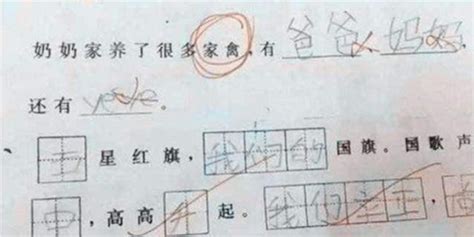 奶奶家养了很多家禽,有 爸爸 妈妈
还有 yeye。
五星红旗,我们的国旗。国歌声
中,高高升起。我们立正,高